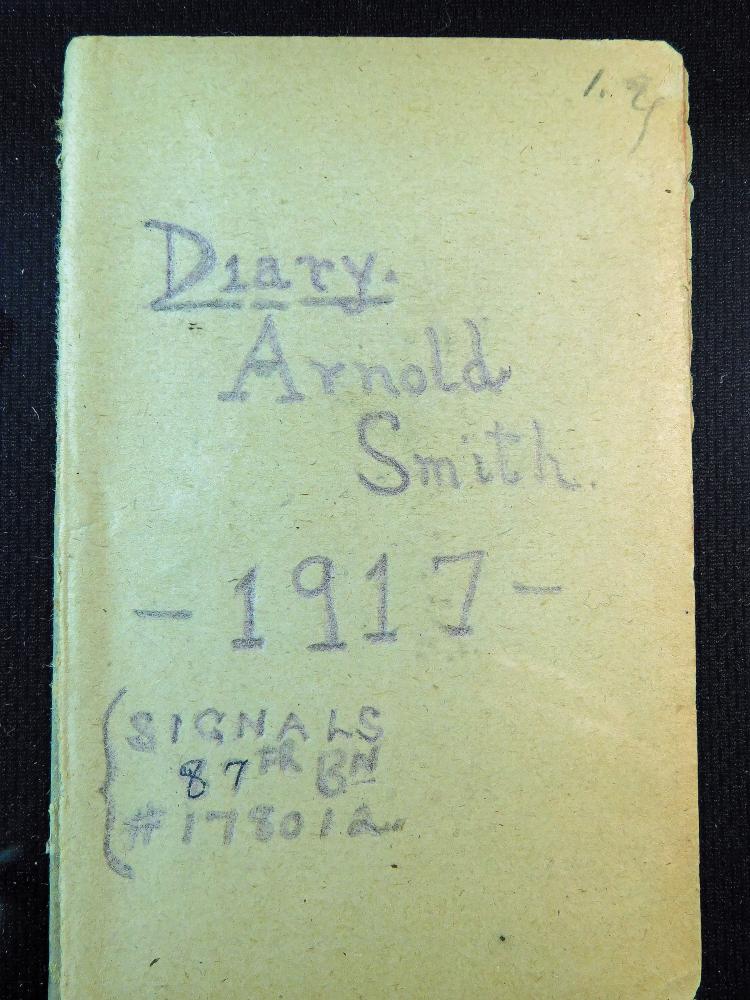 Diary.
Arnold
Smith.
- 1917 -
SIGNALS
87th BN
#178012